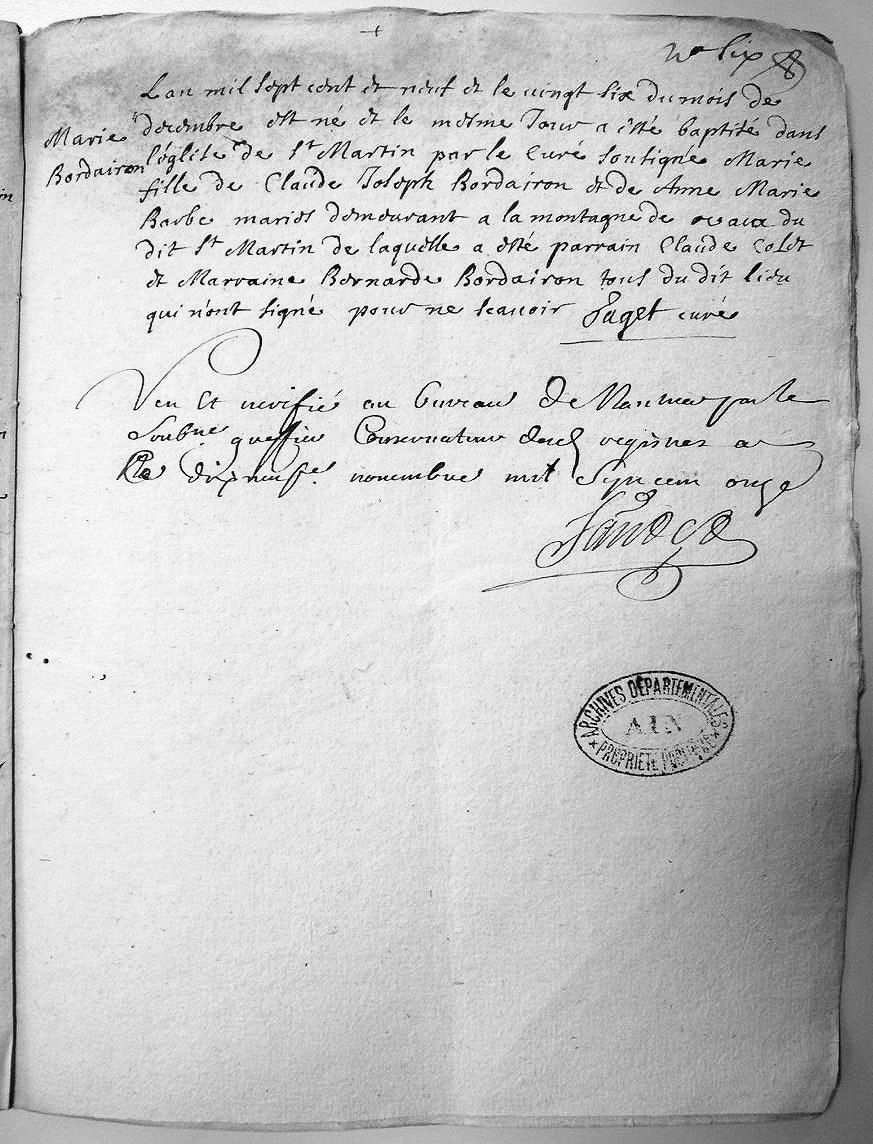 Lan mil sept cent et neuf et le vingt six du mois de
Marie
Bordairon
decembre est né et le mesme Jour a esté baptisé dans
l'église de St Martin par le Curé sousigné Marie
fille de Claude Joseph Bordairon et de Anne Marie
Barbe mariés demeurant a la montagne de du
dit St Martin de laquelle a esté parrain Claude Colet
et Marraine Bernarde Bordairon tous du dit lieu
qui n'ont signé pour ne scauoir Paget curé
Veu et verifié au bureau De Nantua par le
Soubne greffier Conservateur desd registres
dixneufe novembre mil Sept cent onze
ARCHIVES DÉPARTEMENTALES
AIN
PROPRIÉTÉ PUBLIQUE